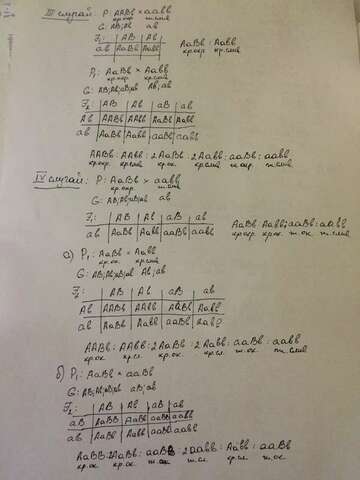 III случай: P: AABb × aabb
кр.окр. ж.слив
G: AB; Ab ab
F₁: | AB | Ab
ab | AaBb | Aabb
AaBb : Aabb
кр.окр. кр.слив
P₁: AaBb × Aabb
кр.окр кр.слив
G: AB; Ab; aB; ab Ab; ab
F₂ | AB | Ab | aB | ab
Ab | AABb | AAbb | AaBb | Aabb
ab | AaBb | Aabb | aaBb | aabb
AABb : AAbb : 2AaBb : 2Aabb : aaBb : aabb
кр.окр кр.слив кр.ок. кр.слив ж.окр. ж.слив
IV случай: P: AaBb × aabb
кр.окр. ж.слив
G: AB; Ab; aB; ab ab
F₁ | AB | Ab | aB | ab
ab | AaBb | Aabb | aaBb | aabb
AaBb : Aabb : aaBb : aabb
а) P₁: AaBb × Aabb
кр.ок. кр.слив
G: AB; Ab; aB; ab Ab; ab
F₂ | AB | Ab | aB | ab
Ab | AABb | AAbb | AaBb | Aabb
ab | AaBb | Aabb | aaBb
AABb : AAbb : 2AaBb : 2Aabb : aaBb : aabb
кр.ок. кр.сл. кр.ок. кр.сл. ж.ок. ж.слив
б) P₁: AaBb × aaBb
G: AB; Ab; aB; ab aB; ab
F₂: | AB | Ab | aB | ab
aB | AaBB | AaBb | aaBB | aaBb
ab | AaBb | Aabb | aaBb | aabb
AaBB : 2AaBb : aaBB : 2aaBb : Aabb : aabb
кр.ок кр.ок. ж.ок кр.сл ж.ок